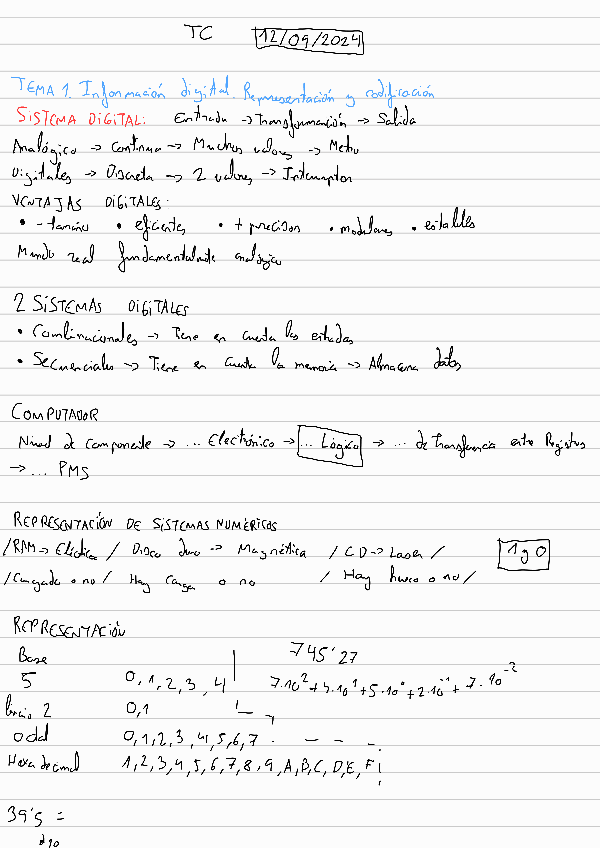 TC 12/09/2024
TEMA 1. Información digital. Representación y codificación
SISTEMA DIGITAL: Entrada → Transformación → Salida
Analógico → Continua → Muchos valores → Metro
Digitales → Discreta → 2 valores → Interruptor
VENTAJAS DIGITALES:
• - tamaño • eficientes • + precisos • modulares • estables
Mundo real fundamentalmente analógico
2 SISTEMAS DIGITALES
• Combinacionales → Tiene en cuenta las entradas
• Secuenciales → Tiene en cuenta la memoria → Almacena datos
COMPUTADOR
Nivel de Componente → ... Electrónico → ... Lógico → ... de transferencia entre Registros
→ ... PMS
REPRESENTACIÓN DE SISTEMAS NUMÉRICOS
/RAM → Eléctrica / Disco duro → Magnética / CD → Laser / 1 y 0
/Cargado o no / Hay carga o no / Hay hueco o no /
REPRESENTACIÓN
Base 745'27
5 0, 1, 2, 3, 4 7·10² + 4·10¹ + 5·10⁰ + 2·10⁻¹ + 7·10⁻²
2 0,1
octal 0,1,2,3,4,5,6,7
Hexadecimal 1,2,3,4,5,6,7,8,9,A,B,C,D,E,F
39'5 =